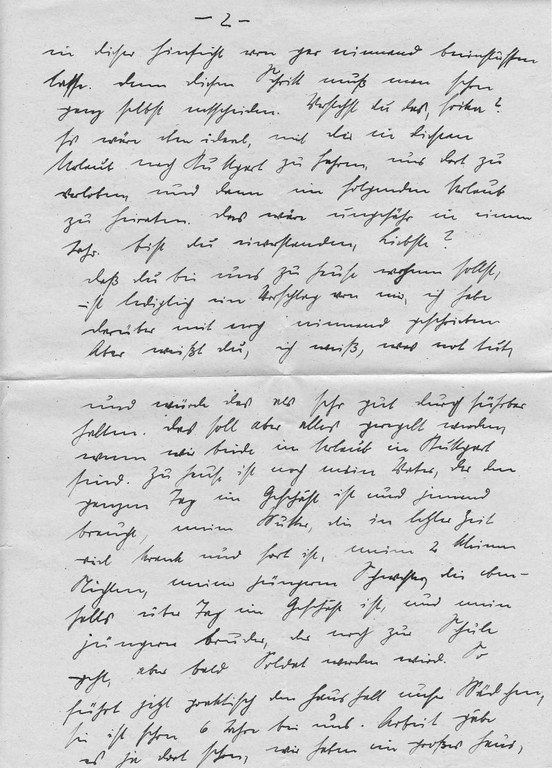 - 2 -
in dieser Hinsicht von gar niemand beeinflussen
lasse. Denn diesen Schritt muß man schon
ganz selbst entscheiden. Verstehst du das, Erika?
Es wäre eben ideal, mit dir in diesem
Urlaub nach Stuttgart zu fahren, uns dort zu
verloben, und dann im folgenden Urlaub
zu heiraten. Das wäre ungefähr in einem
Jahr. Bist du einverstanden, Liebste?
Daß du bei uns zu Hause wohnen sollst,
ist lediglich ein Vorschlag von mir, ich habe
darüber mit noch niemand geschrieben.
Aber weißt du, ich weiß, was not tut,
und würde das als sehr gut durchführbar
halten. Das soll aber alles geregelt werden,
wenn wir beide in Urlaub in Stuttgart
sind. Zu Hause ist noch mein Vater, der den
ganzen Tag im Geschäft ist und jemand
braucht, meine Mutter, die in letzter Zeit
viel krank und fort ist, meine 2 kleinen
Nichten, meine jüngere Schwester, die eben-
falls über Tag im Geschäft ist, und mein
jüngerer Bruder, der noch zur Schule
geht, aber bald Soldat werden wird. So
führt jetzt praktisch den Haushalt unser Mädchen,
sie ist schon 6 Jahre bei uns. Arbeit gäbe
es ja dort schon, wir haben ein großes Haus,